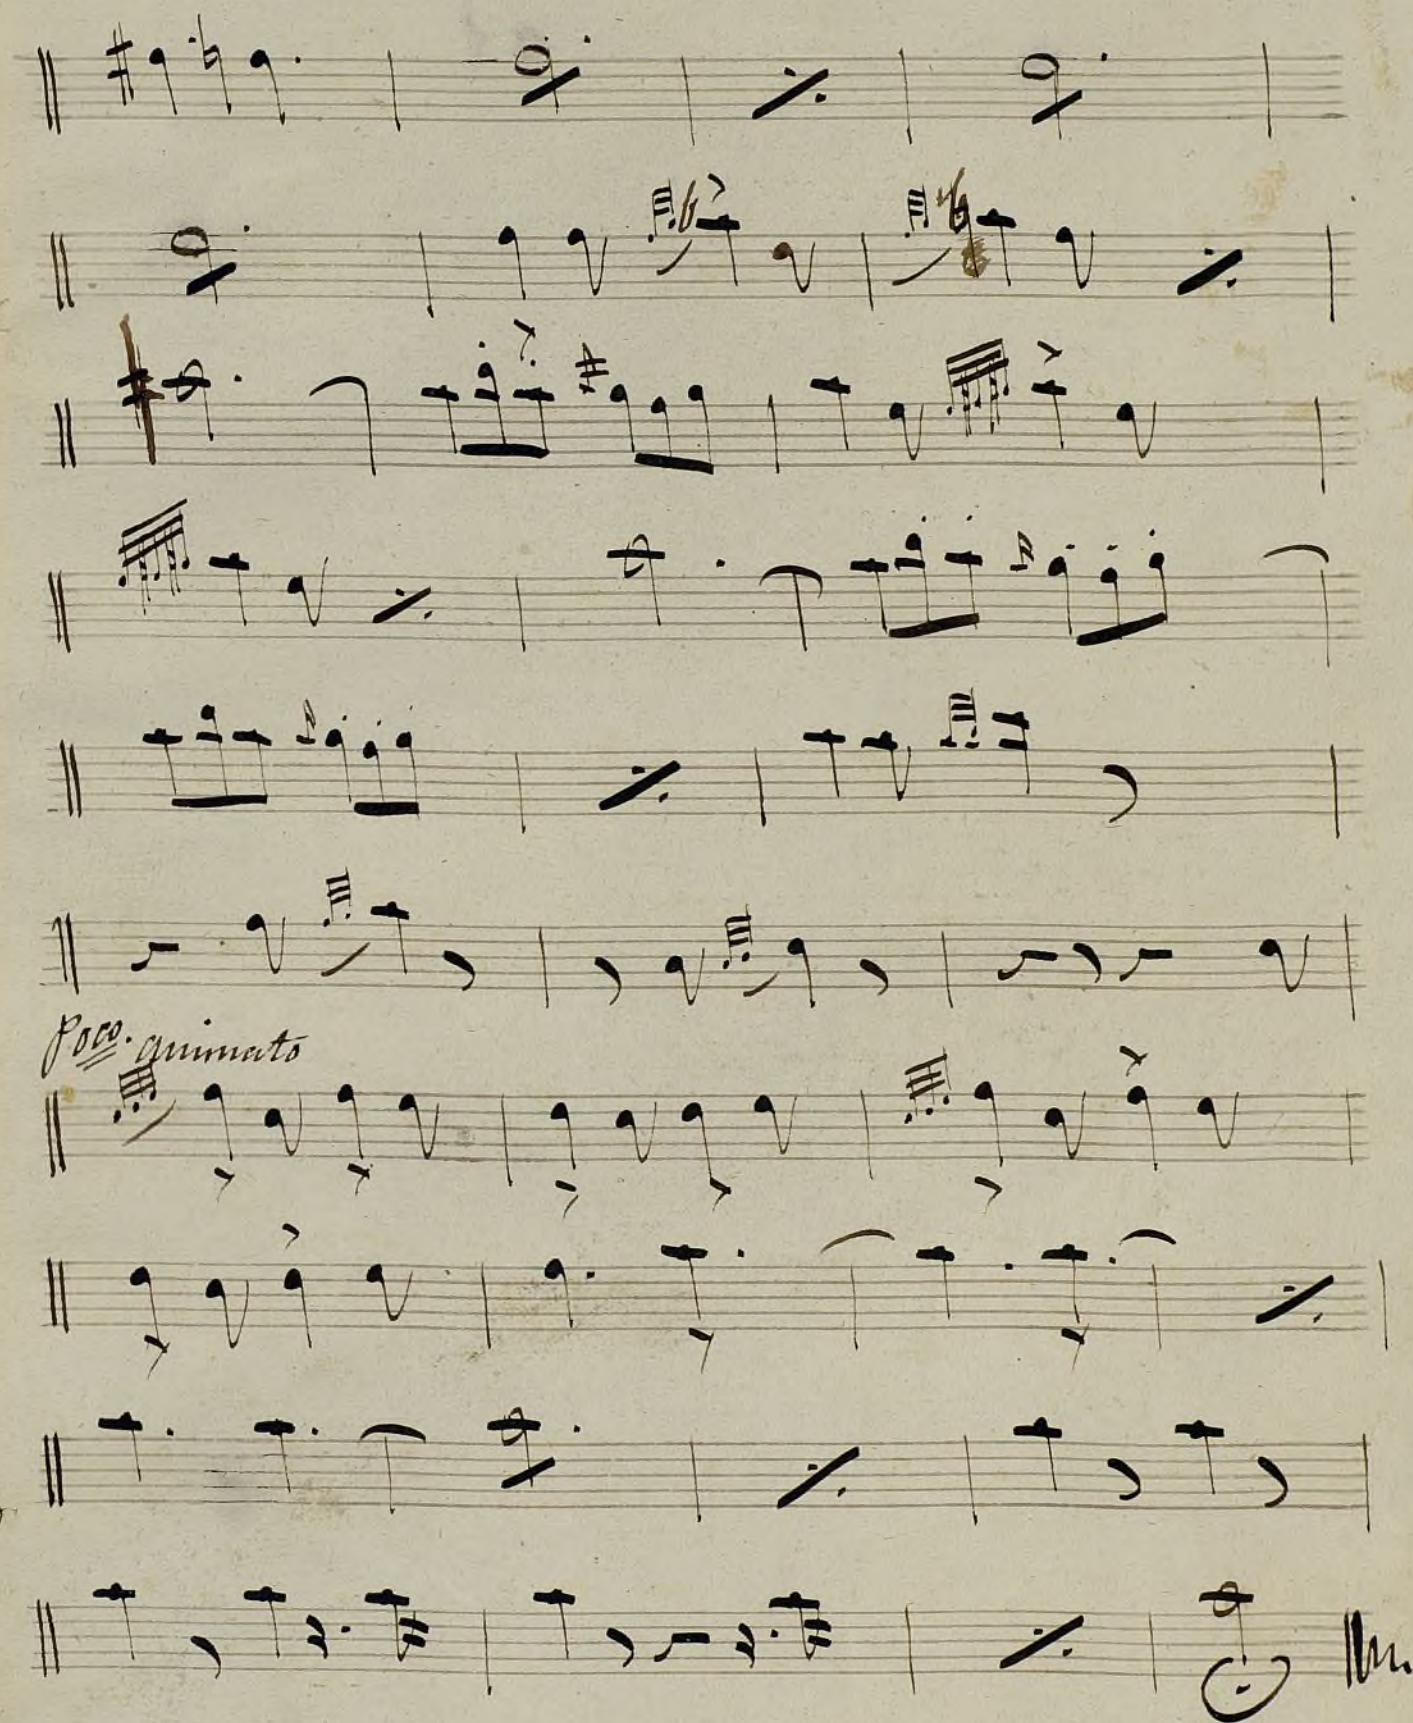 Poco. animato